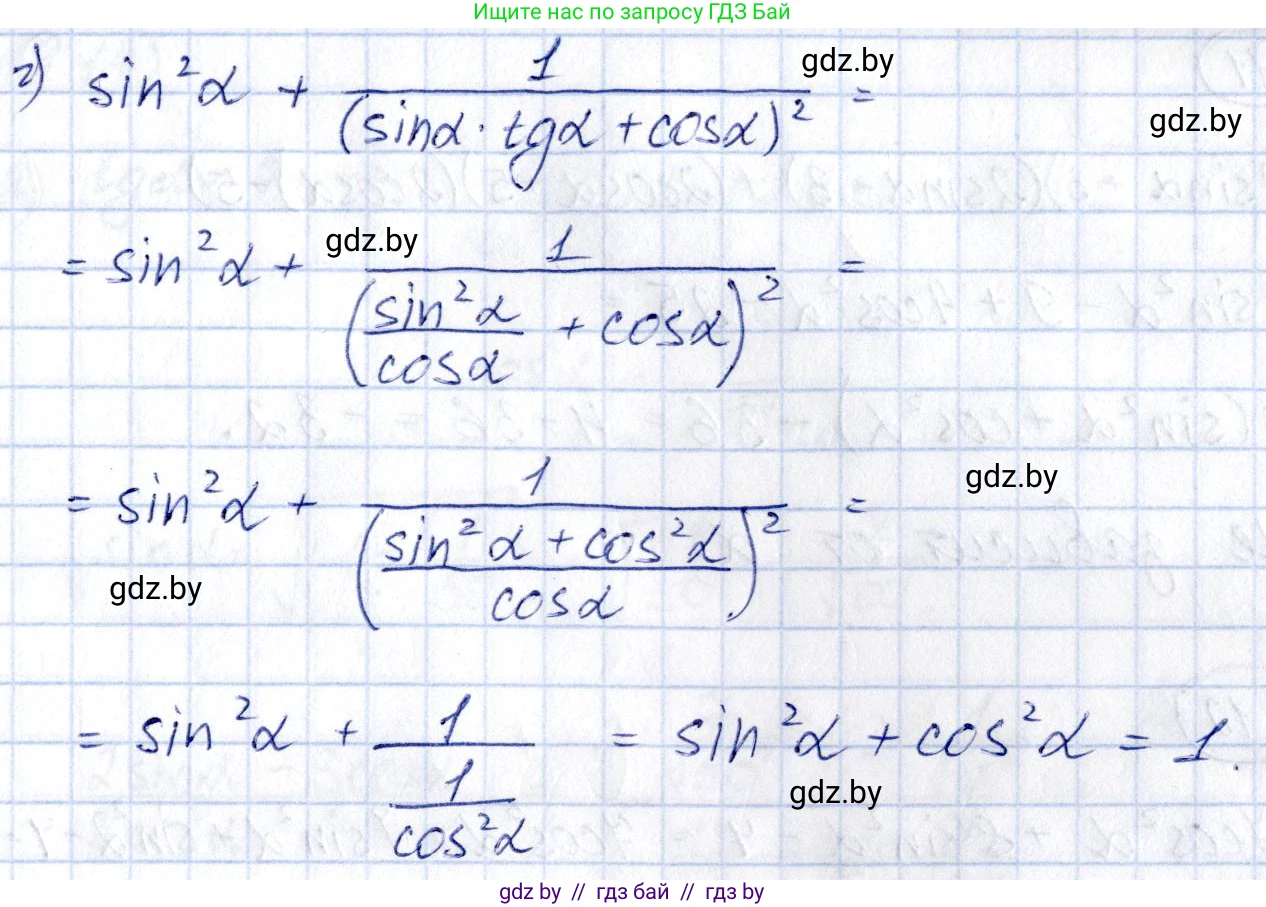 Ищите нас по запросу ГДЗ Бай
г) sin²α + 1/(sinα · tgα + cosα)² =
gdz.by
gdz.by
= sin²α + 1/(sin²α/cosα + cosα)² =
gdz.by
= sin²α + 1/((sin²α + cos²α)/cosα)² =
gdz.by
gdz.by
= sin²α + 1/(1/cos²α) = sin²α + cos²α = 1.
gdz.by
gdz by // гдз бай // гдз by